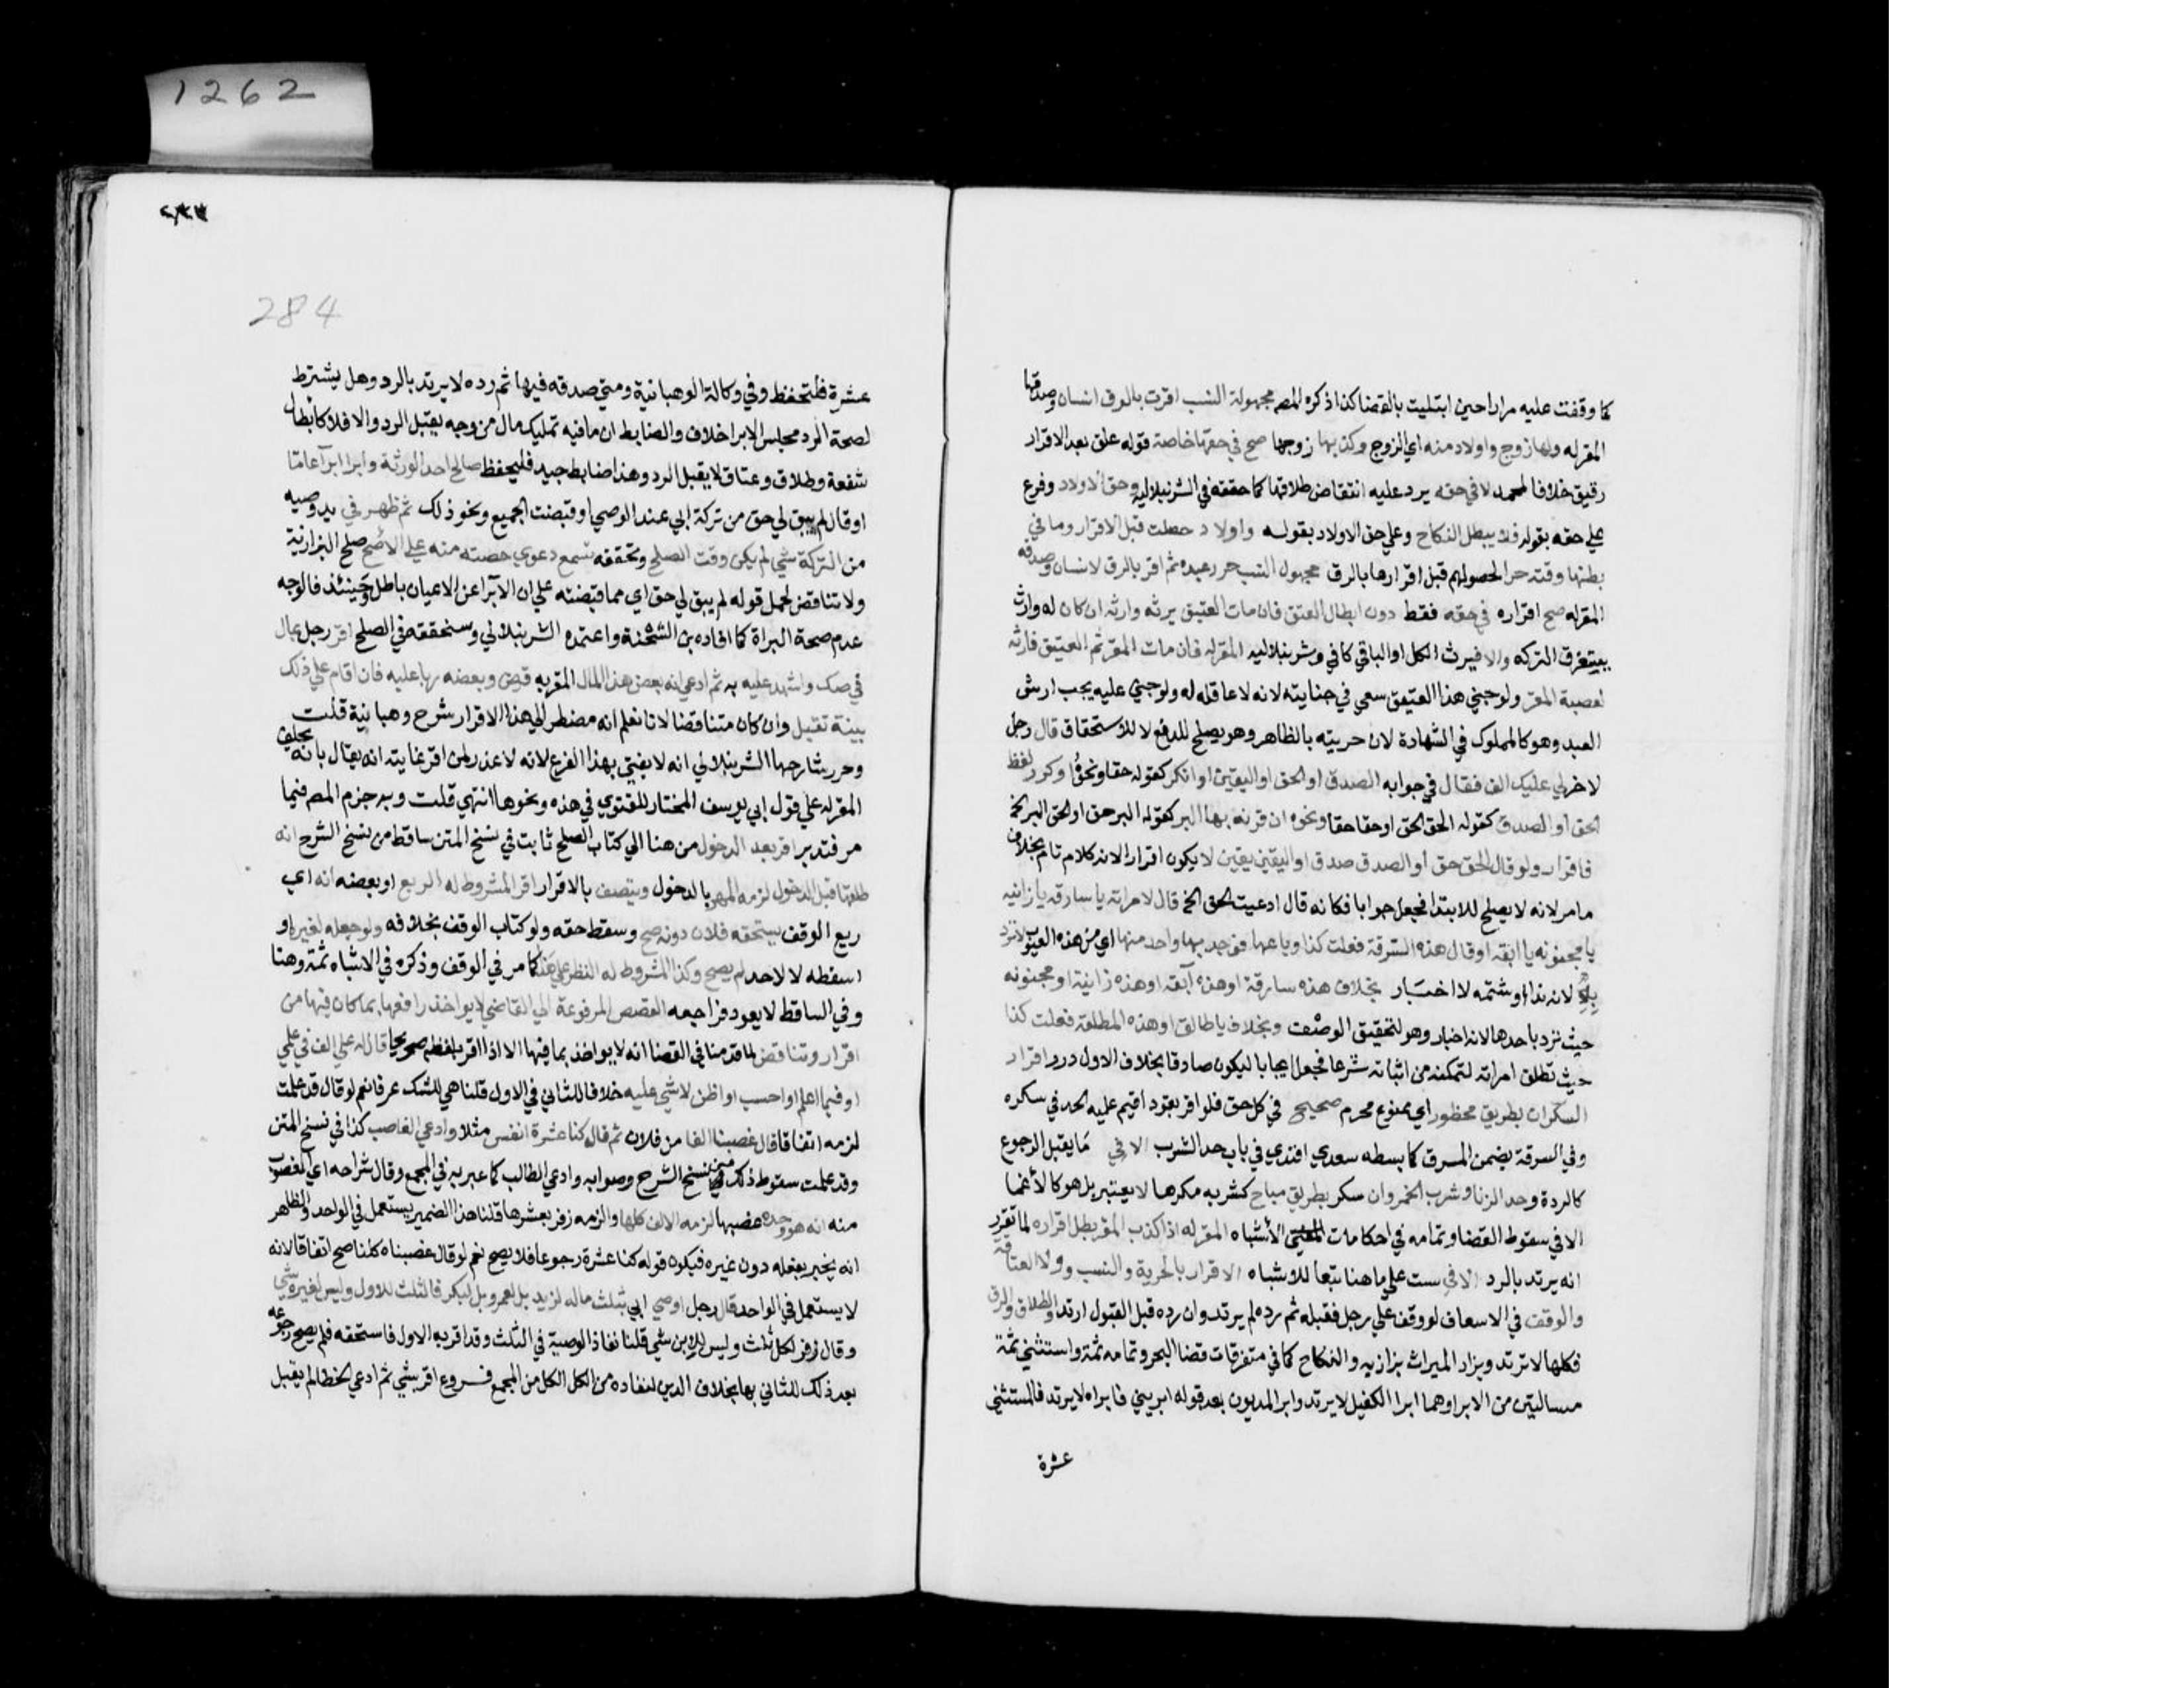 1262
كما وقفت عليه مرارا حين ابتليت بالقضا كذا ذكره المصـ مجهولة النسب اقرت بالرق لانسان وصدقها
المقر له ولها زوج واولاد منه اي الزوج وكذبها زوجها صح في حقها خاصة فولد علق بعد الاقرار
رقيق خلافا لمحمد لا في حقه يرد عليه انتقاض طلاقها كما حققه في الشرنبلاليه وحق الاولاد وفرع
علي حقه بقوله فلا يبطل النكاح وعلي حق الاولاد بقوله واولاد حصلت قبل الاقرار وما في
بطنها وقته حرا لحصولهم قبل اقرارها بالرق مجهول النسب حرر عبده ثم اقر بالرق لانسان وصدقه
المقر له صح اقراره في حقه فقط دون ابطال العتق فان مات العتيق يرثه وارثه ان كان له وارث
يستغرق التركه والا فيرث الكل او الباقي كافي وشرنبلاليه المقر له فان مات المقر ثم العتيق فارثه
لعصبة المقر ولو جني هذا العتيق سعي في جنايته لانه لا عاقله له ولو جني عليه يجب ارش
العبد وهو كالمملوك في الشهادة لان حريته بالظاهر وهو يصلح للدفع لا للاستحقاق قال رجل
لاخر لي عليك الف فقال في جوابه الصدق او الحق او اليقين او انكر كقوله حقا ونحوه او كرر لفظ
الحق او الصدق كقوله الحق الحق او حقا حقا ونحوه ان قرن بها البر كقوله البر حق او الحق البر الخ
فاقرار ولو قال الحق حق او الصدق صدق او اليقين يقين لا يكون اقرارا لانه كلام تام بخلاف
ما مر لانه لا يصلح للابتدا فجعل جوابا فكانه قال ادعيت الحق الخ قال لامراته يا سارقه يا زانيه
يا مجنونه يا ابقه او قال هذه السرقة فعلت كذا وباعها فوجد بها واحد منها اي من هذه العيوب لا ترد
به لانه نداء او شتمه لا اخبار بخلاف هذه سارقة او هذه آبقه او هذه زانية او مجنونه
حيث ترد باحدها لانه اخبار وهو لتحقيق الوصف وبخلاف يا طالق او هذه المطلقة فعلت كذا
حيث تطلق امراته لتمكنه من اثباته شرعا فجعل ايجابا ليكون صادقا بخلاف الاول درر اقرار
السكران بطريق محظور اي ممنوع محرم صحيح في كل حق فلو اقر بقود اقيم عليه الحد في سكره
وفي السرقة يضمن المسرق كما بسطه سعدي افندي في باب حد الشرب الا في ما يقبل الرجوع
كالردة وحد الزنا وشرب الخمر وان سكر بطريق مباح كشربه مكرها لا يعتبر بل هو كالأغما
الا في سقوط القضا وتمامه في احكامات الأشباه المقر له اذا كذب المقر بطل اقراره لما تقرر
انه يرتد بالرد الا في ست علي ما هنا تبعا للاشباه الاقرار بالحرية والنسب وولا العتاقة
والوقف في الاسعاف لو وقف علي رجل فقبله ثم رده لم يرتد وان رده قبل القبول ارتد والطلاق والرق
فكلها لا ترتد ويزاد الميراث بزازيه والنكاح كما في متفرقات قضا البحر وتمامه ثمة واستثني ثمة
مسالتين من الابرا وهما ابرا الكفيل لا يرتد وابرا المديون بعد قوله ابريني فابراه لا يرتد فالمستثني
عشرة
284
عشرة فلتحفظ وفي وكالة الوهبانية ومتي صدقه فيها ثم رده لا يرتد بالرد وهل يشترط
لصحة الرد مجلس الابرا خلاف والضابط ان ما فيه تمليك مال من وجه يقبل الرد والا فلا كابطال
شفعة وطلاق وعتاق لا يقبل الرد وهذا ضابط جيد فليحفظ صالح احد الورثة وابرا ابرآ عاما
او قال لم يبق لي حق من تركة ابي عند الوصي او قبضت الجميع ونحو ذلك ثم ظهر في يد وصيه
من التركة شي لم يكن وقت الصلح وتحققه تسمع دعوي حصته منه علي الأصح صلح البزازية
ولا تناقض لحمل قوله لم يبق لي حق اي مما قبضته علي ان الآبرآ عن الاعيان باطل وحينئذ فالوجه
عدم صحة البراة كما افاده بن الشحنة واعتمده الشرنبلالي وسنحققه في الصلح اقر رجل بمال
في صك واشهد عليه به ثم ادعي انه بعض هذا المال المقر به قرض وبعضه ربا عليه فان اقام علي ذلك
بينة تقبل وان كان متناقضا لانا نعلم انه مضطر الي هذا الاقرار شرح وهبانية قلت
وحرر شارحها الشرنبلالي انه لا يفتي بهذا الفرع لانه لا عذر لمن اقر غايته انه يقال بانه يحلف
المقر له علي قول ابي يوسف المختار للفتوي في هذه ونحوها انتهي قلت وبه جزم المصـ فيما
مر فتدبر اقر بعد الدخول من هنا الي كتاب الصلح ثابت في نسخ المتن ساقط من نسخ الشرح انه
طلقها قبل الدخول لزمه المهر بالدخول ونصف بالاقرار اقر المشروط له الريع او بعضه انه اي
ريع الوقف يستحقه فلان دونه صح وسقط حقه ولو كتاب الوقف بخلافه ولو جعله لغيره او
اسقطه لا لاحد لم يصح وكذا المشروط له النظر علي هذا كما مر في الوقف وذكره في الاشباه ثمة وهنا
وفي الساقط لا يعود فراجعه القصص المرفوعة الي القاضي لا يواخذ رافعها بما كان فيها من
اقرار وتناقض لما قدمنا في القضا انه لا يواخذ بما فيها الا اذا اقر بلفظه صريحا قال له علي الف في علمي
او فيما اعلم او احسب او اظن لا شي عليه خلافا للثاني في الاول قلنا هي للشك عرفا نعم لو قال قد علمت
لزمه اتفاقا قال غصبنا الفا من فلان ثم قال كنا عشرة انفس مثلا وادعي الغاصب كذا في نسخ المتن
وقد علمت سقوط ذلك من نسخ الشرح وصوابه وادعي الطالب كما عبر به في المجمع وقال شراحه اي المغصوب
منه انه هو وحده غصبها لزمه الالف كلها والزمه زفر بعشرها قلنا هذا الضمير يستعمل في الواحد والظاهر
انه يخبر بفعله دون غيره فيكون قوله كنا عشرة رجوعا فلا يصح نعم لو قال غصبناه كلنا صح اتفاقا لانه
لا يستعمل في الواحد قال رجل اوصي ابي بثلث ماله لزيد بل لعمرو بل لبكر فالثلث للاول وليس لغيره شي
وقال زفر لكل ثلث وليس للابن شي قلنا نفاذ الوصية في الثلث وقد اقر به الاول فاستحقه فلم يصح رجوعه
بعد ذلك للثاني بها بخلاف الدين لنفاده من الكل الكل من المجمع فــروع اقر بشي ثم ادعي الخطا لم يقبل